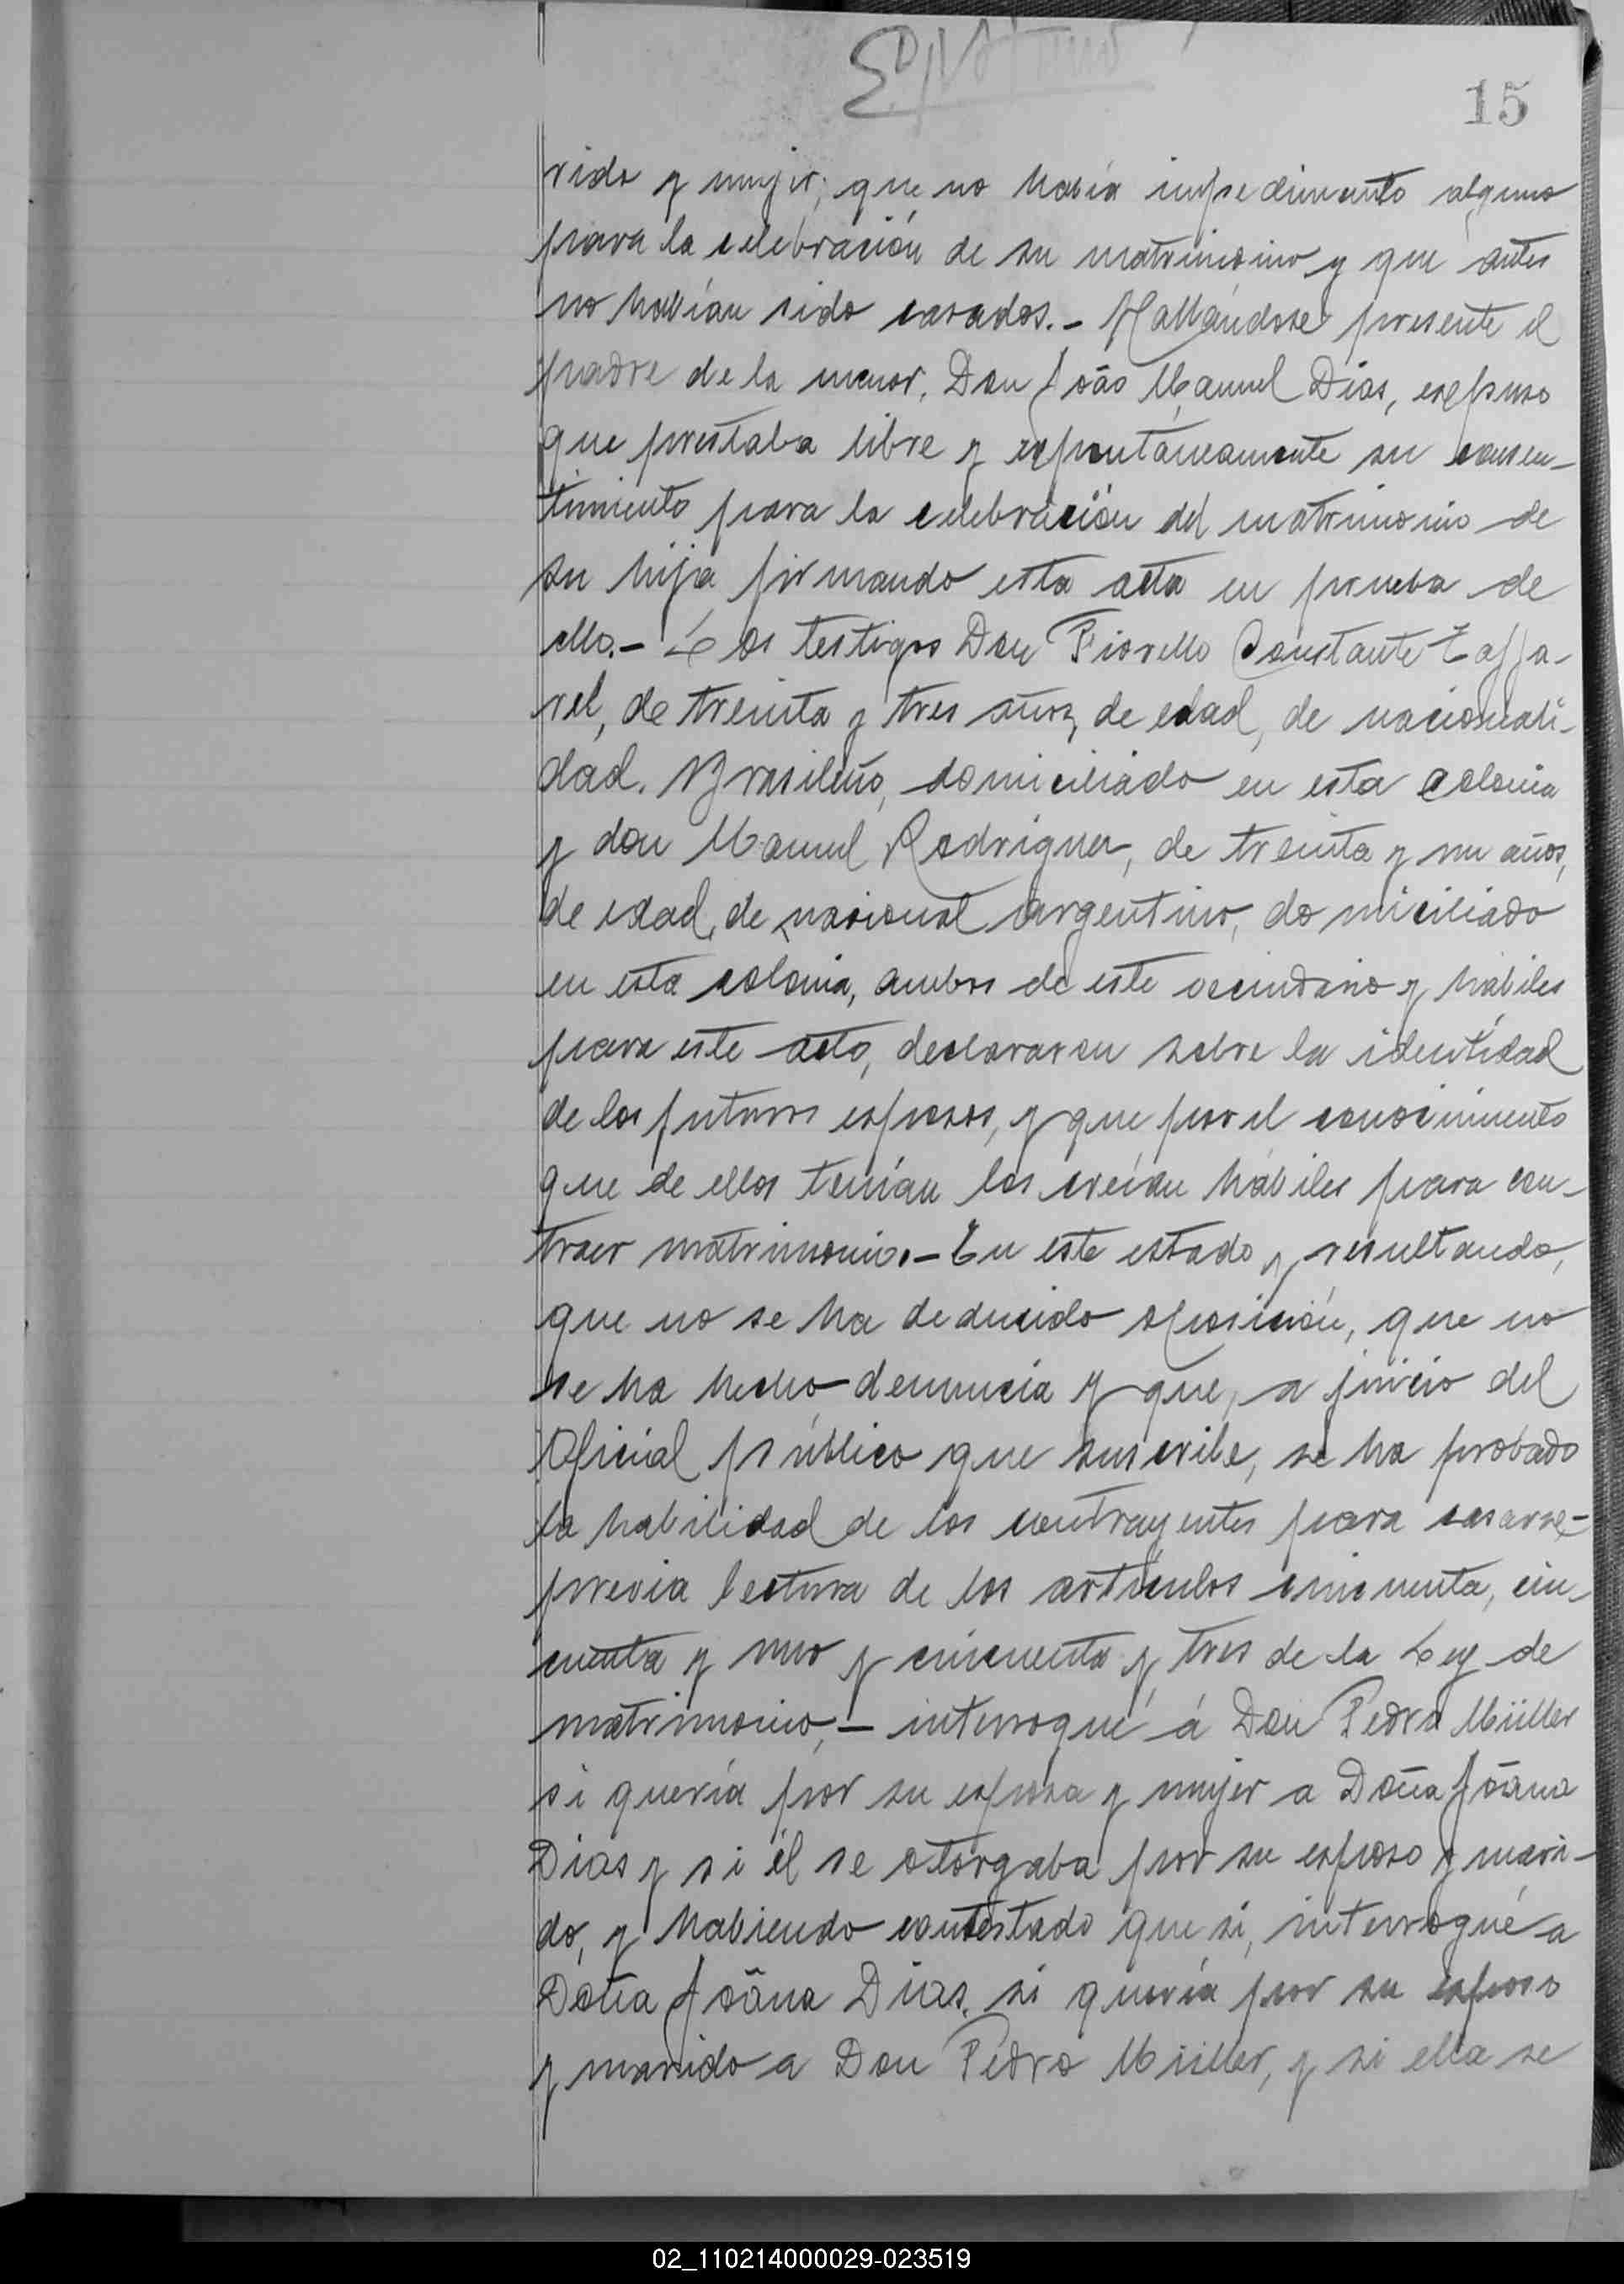 15
rido y mujer; que no había impedimento alguno
para la celebración de su matrimonio y que antes
no habían sido casados.- Hallándose presente el
padre de la menor, Don João Manuel Dias, expuso
que prestaba libre y espontáneamente su consen-
timiento para la celebración del matrimonio de
su hija firmando esta acta en prueba de
ello.- Los testigos Don Fiorello Constante Zaffa-
rel, de treinta y tres años, de edad, de nacionali-
dad. Brasileño, domiciliado en esta colonia
y don Manuel Rodriguez, de treinta y un años,
de edad, de nacional argentino, domiciliado
en esta colonia, ambos de este vecindario y hábiles
para este acto, declararon sobre la identidad
de los futuros esposos, y que por el conocimiento
que de ellos tenían los creían hábiles para con-
traer matrimonio.- En este estado y resultando,
que no se ha deducido oposición, que no
se ha hecho denuncia y que, a juicio del
Oficial público que suscribe, se ha probado
la habilidad de los contrayentes para casarse,-
previa lectura de los artículos cincuenta, cin-
cuenta y uno y cincuenta y tres de la Ley de
matrimonio,- interrogué á Don Pedro Müller
si quería por su esposa y mujer a Doña Joãna
Dias y si él se otorgaba por su esposo y mari-
do, y habiendo contestado que si, interrogué a
Doña Joãna Dias, si quería por su esposo
y marido a Don Pedro Müller, y si ella se
02_110214000029-023519